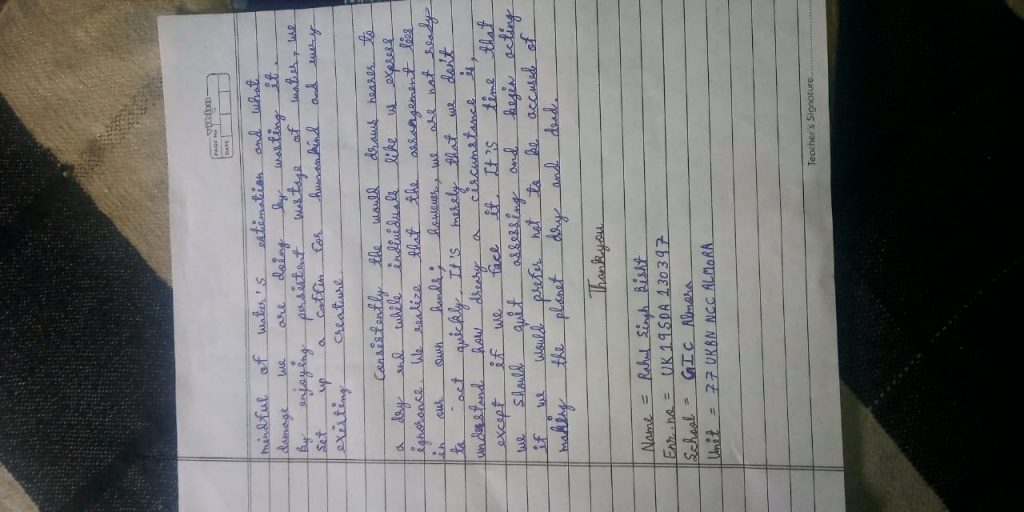 PAGE NO
DATE
mindful of water's estimation and what
damage we are doing by wasting it.
By enjoying persistent wastage of water, we
set up a coffin for humankind and every
existing creature.
Consistently the world draws nearer to
a dry and while individuals like us express
ignorance. We realize that the arrangement lies
in our own hands; however, we are not ready
to act quickly. It's merely that we don't
understand how dreary a circumstance is,
except if we face it. It's time that
we should quit assessing and begin acting
if we would prefer not to be accused of
making the planet dry and dead.
Thankyou
Name = Rahul Singh Bisht
Enr-no = UK19SDA130397
School = GIC Almora
Unit = 77 UKBN NCC ALMORA
Teacher's Signature